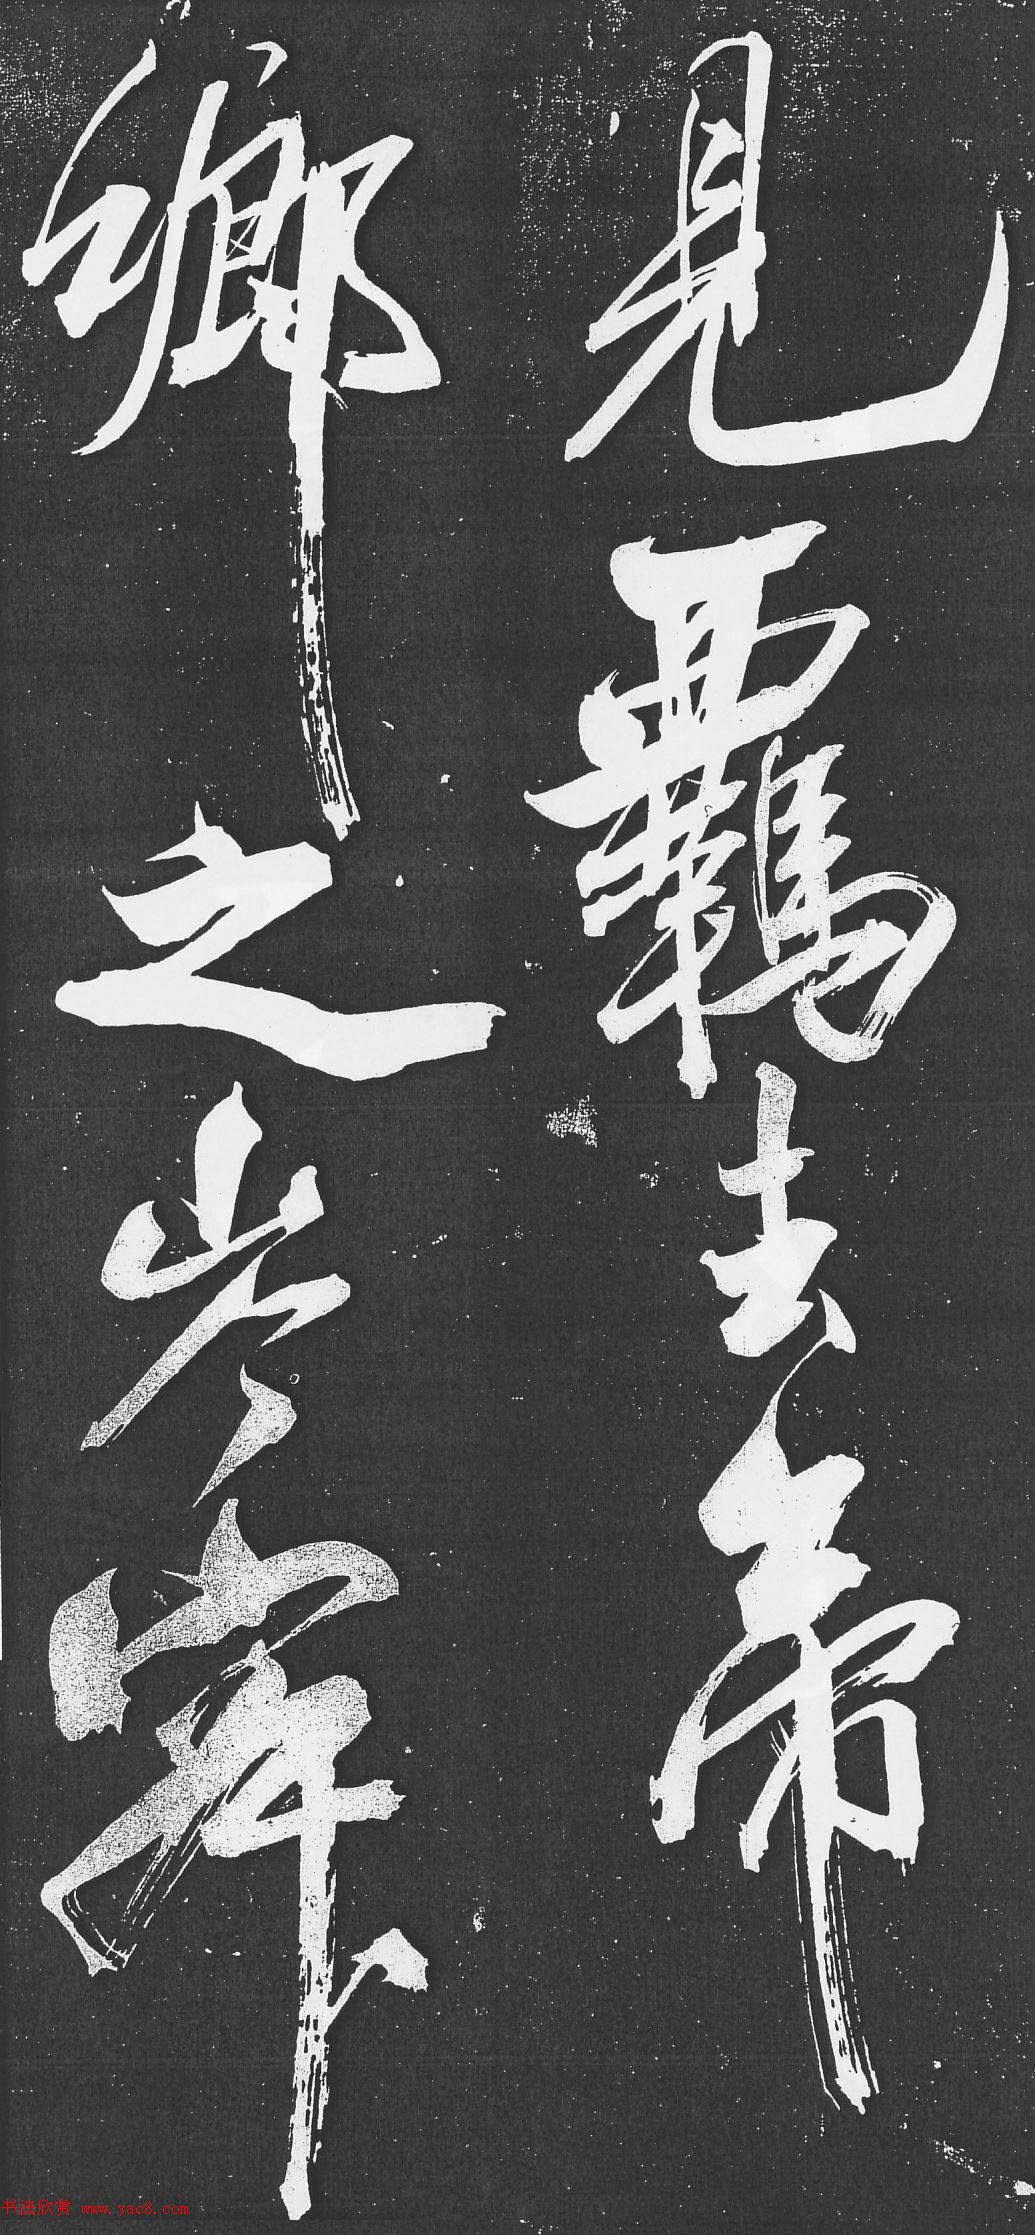 見羈去帝
鄉之岑寂
书法欣赏 www.yac8.com